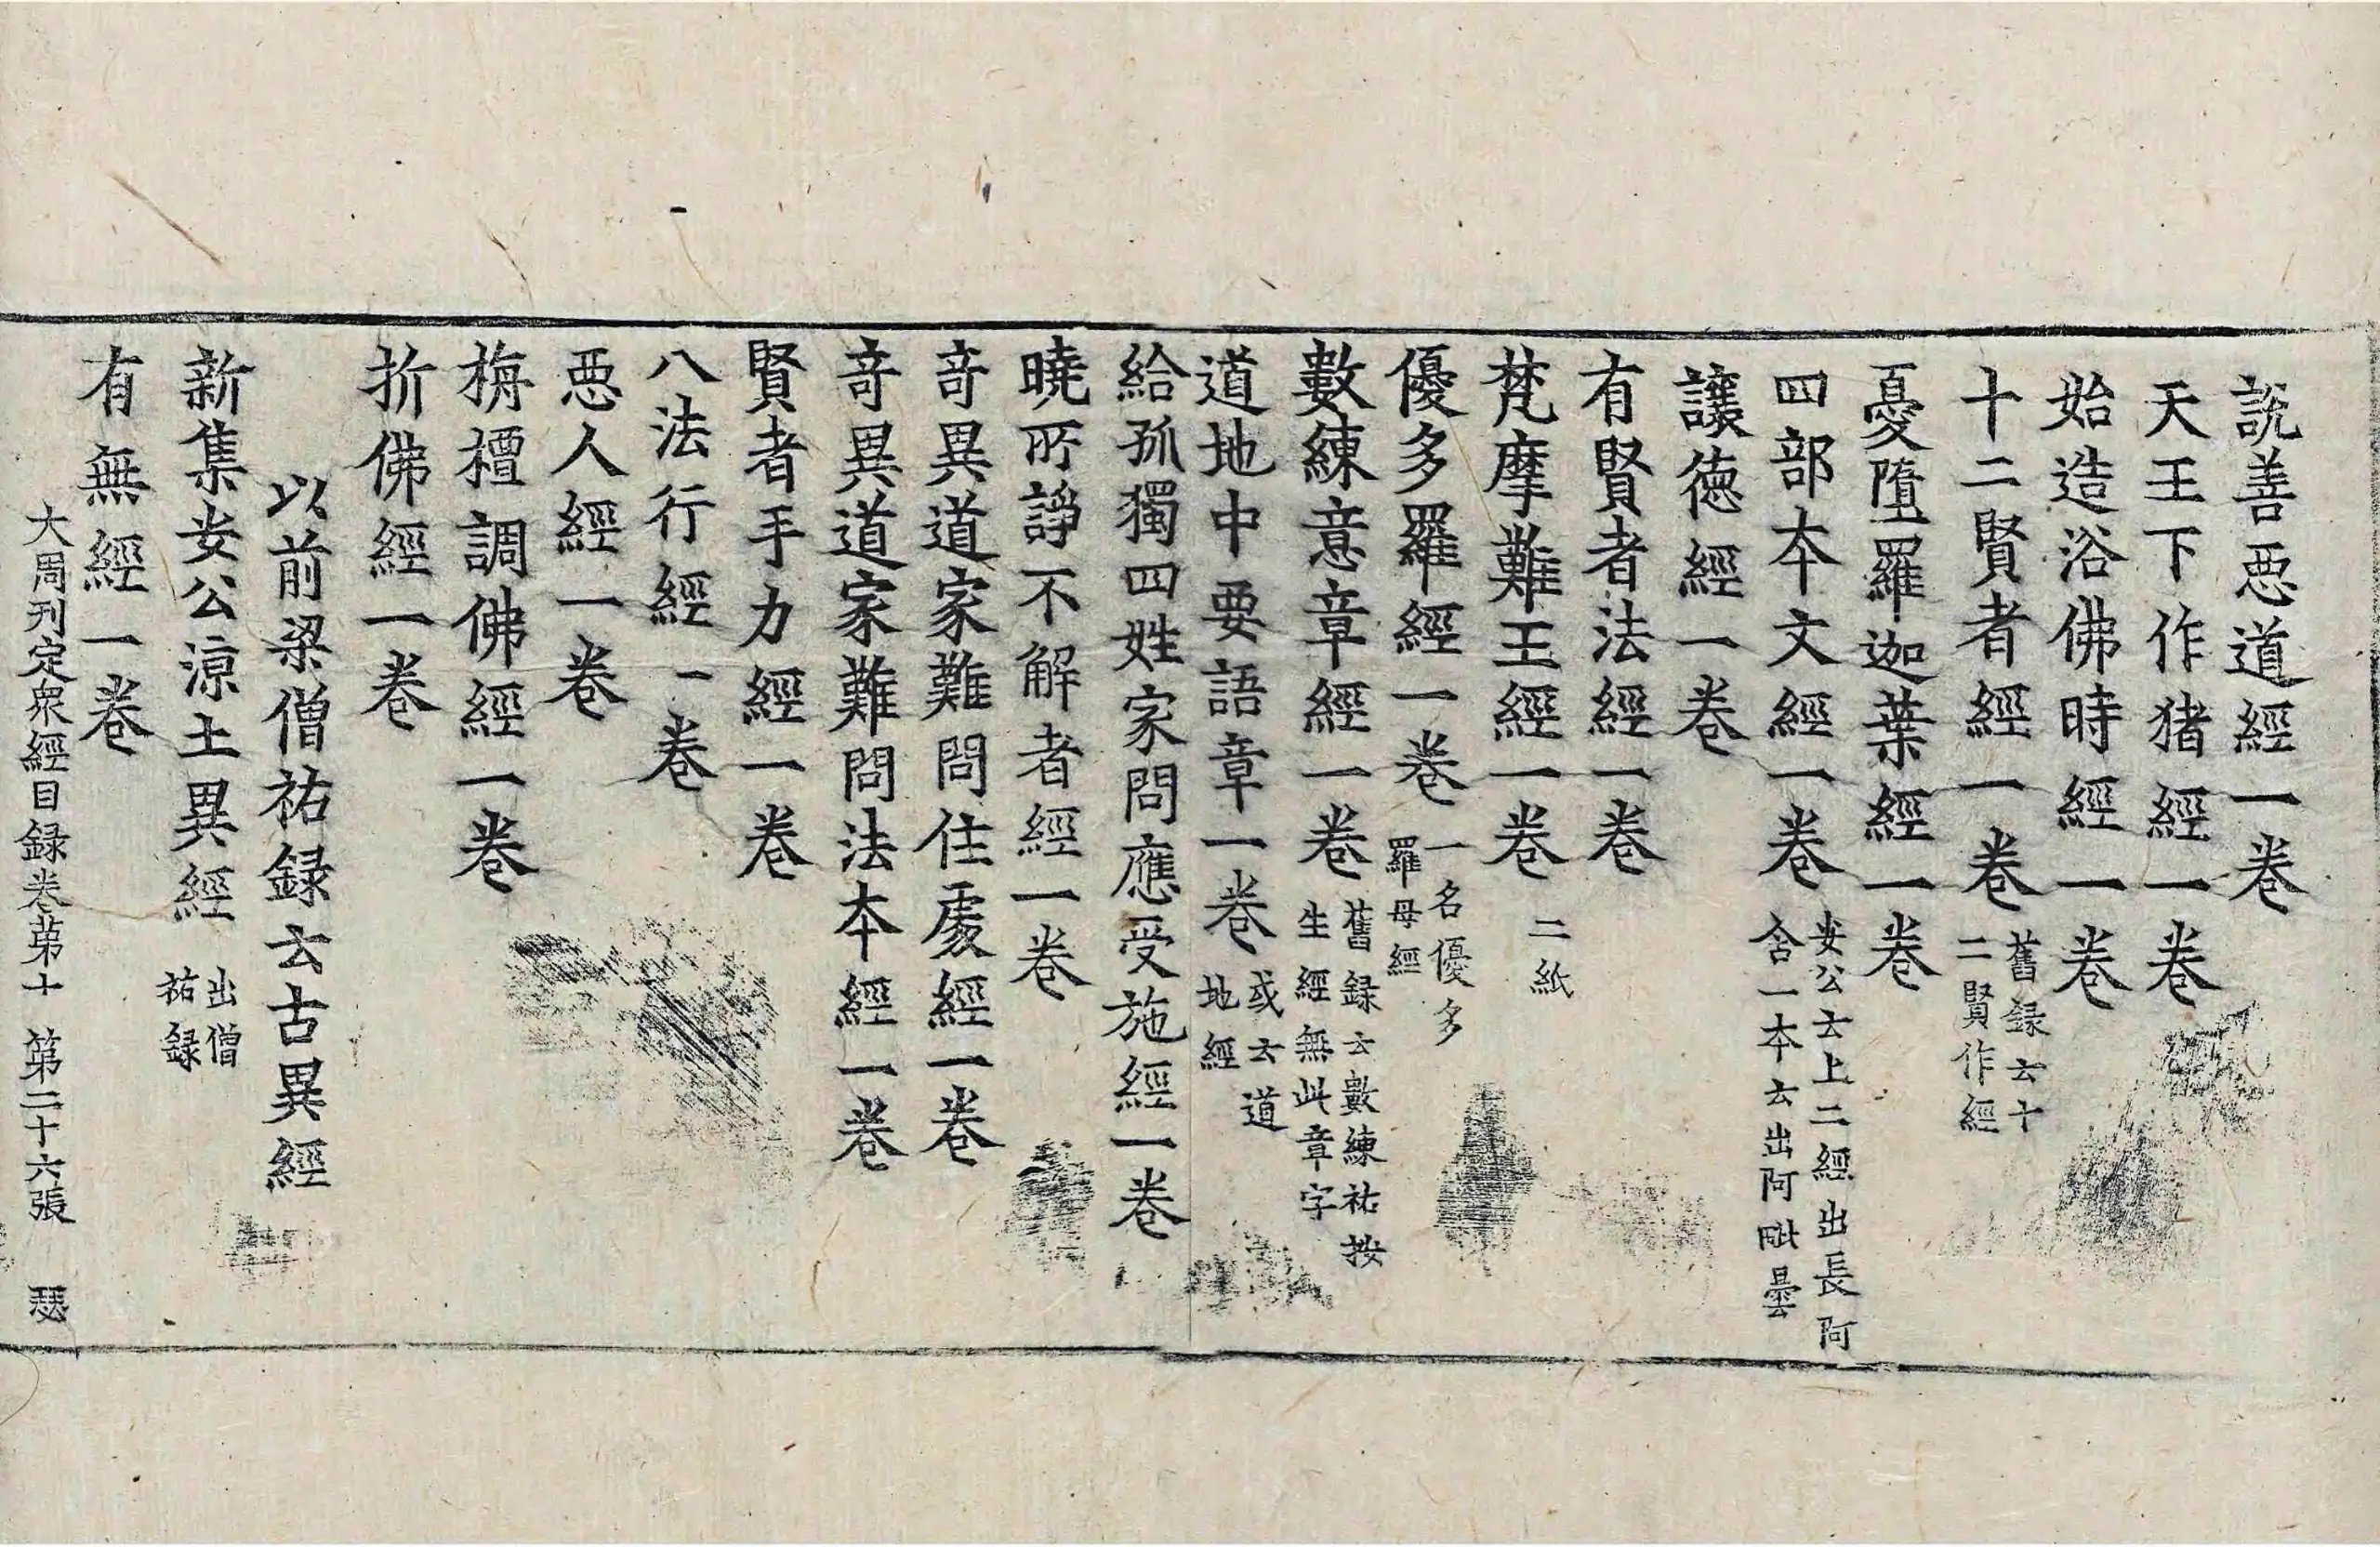 説善惡道經一卷
天王下作猪經一卷
始造浴佛時經一卷
十二賢者經一卷 舊録云十
二賢作經
憂墮羅迦葉經一卷
四部本文經一卷 安公云上二經出長阿
含一本云出阿毗曇
讓德經一卷
有賢者法經一卷
梵摩難王經一卷 二紙
優多羅經一卷 一名優多
羅母經
數練意章經一卷 舊録云數練祐按
生經無此章字
道地中要語章一卷 或云道
地經
給孤獨四姓家問應受施經一卷
曉所諍不解者經一卷
奇異道家難問住處經一卷
奇異道家難問法本經一卷
賢者手力經一卷
八法行經一卷
惡人經一卷
栴檀調佛經一卷
折佛經一卷
以前梁僧祐録云古異經
新集安公涼土異經 出僧
祐録
有無經一卷
大周刊定衆經目録卷苐十 第二十六張 瑟